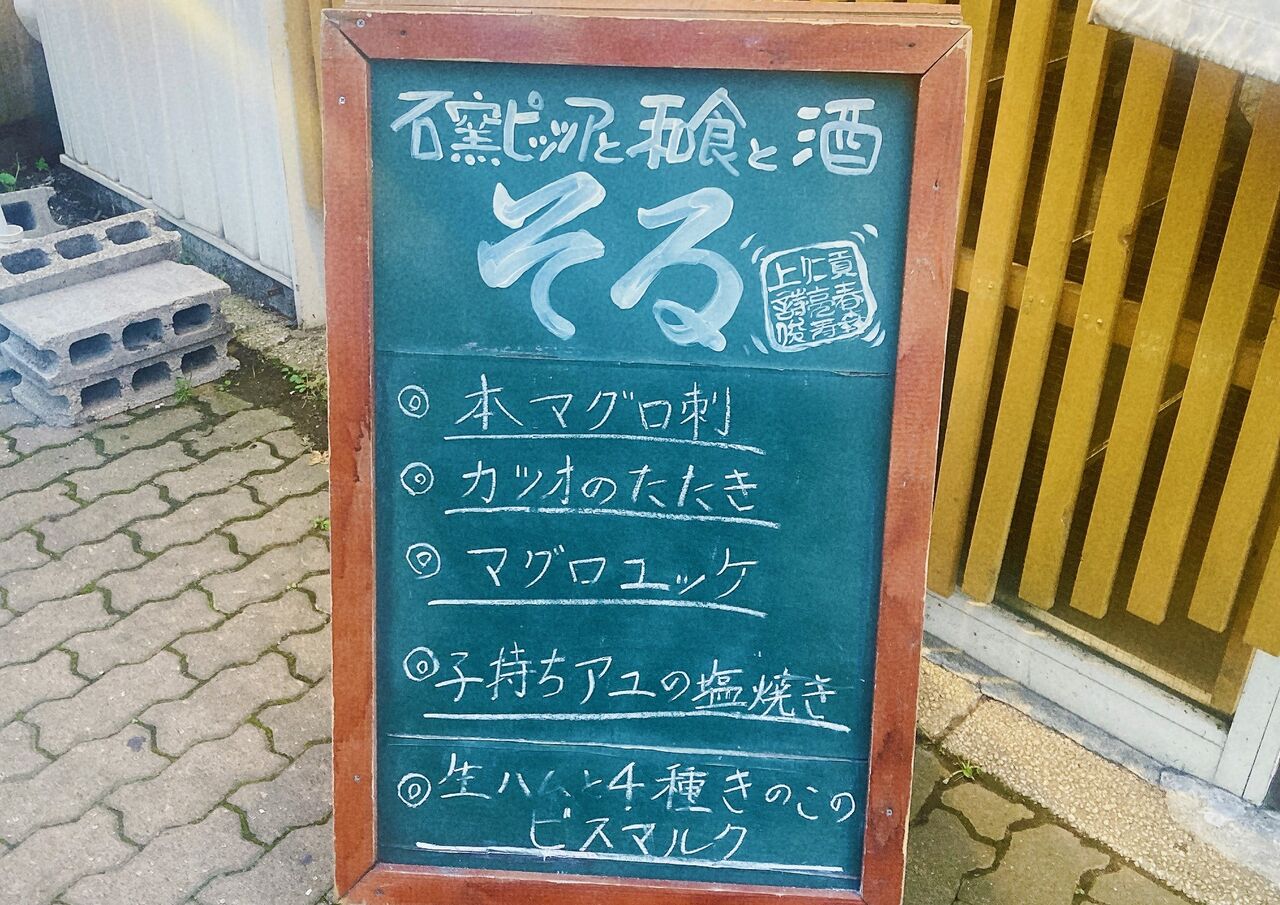 石窯ピッツアと和食と酒
そる
◎ 本マグロ刺
◎ カツオのたたき
◎ マグロユッケ
◎ 子持ちアユの塩焼き
◎ 生ハムと4種きのこの
ビスマルク